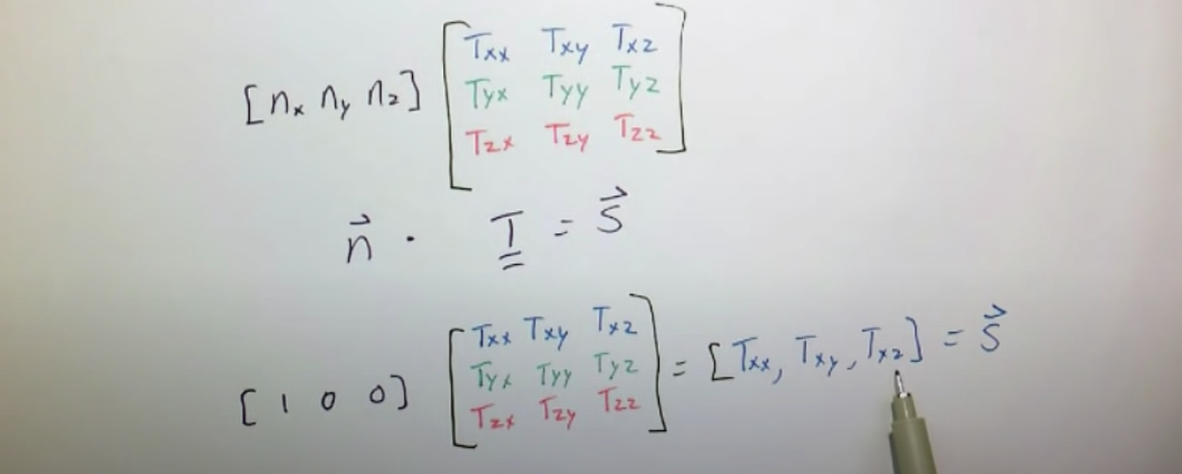 [nx ny nz] [Txx Txy Txz
Tyx Tyy Tyz
Tzx Tzy Tzz]
n⃗ · T = S⃗
[1 0 0] [Txx Txy Txz
Tyx Tyy Tyz
Tzx Tzy Tzz] = [Txx, Txy, Txz] = S⃗